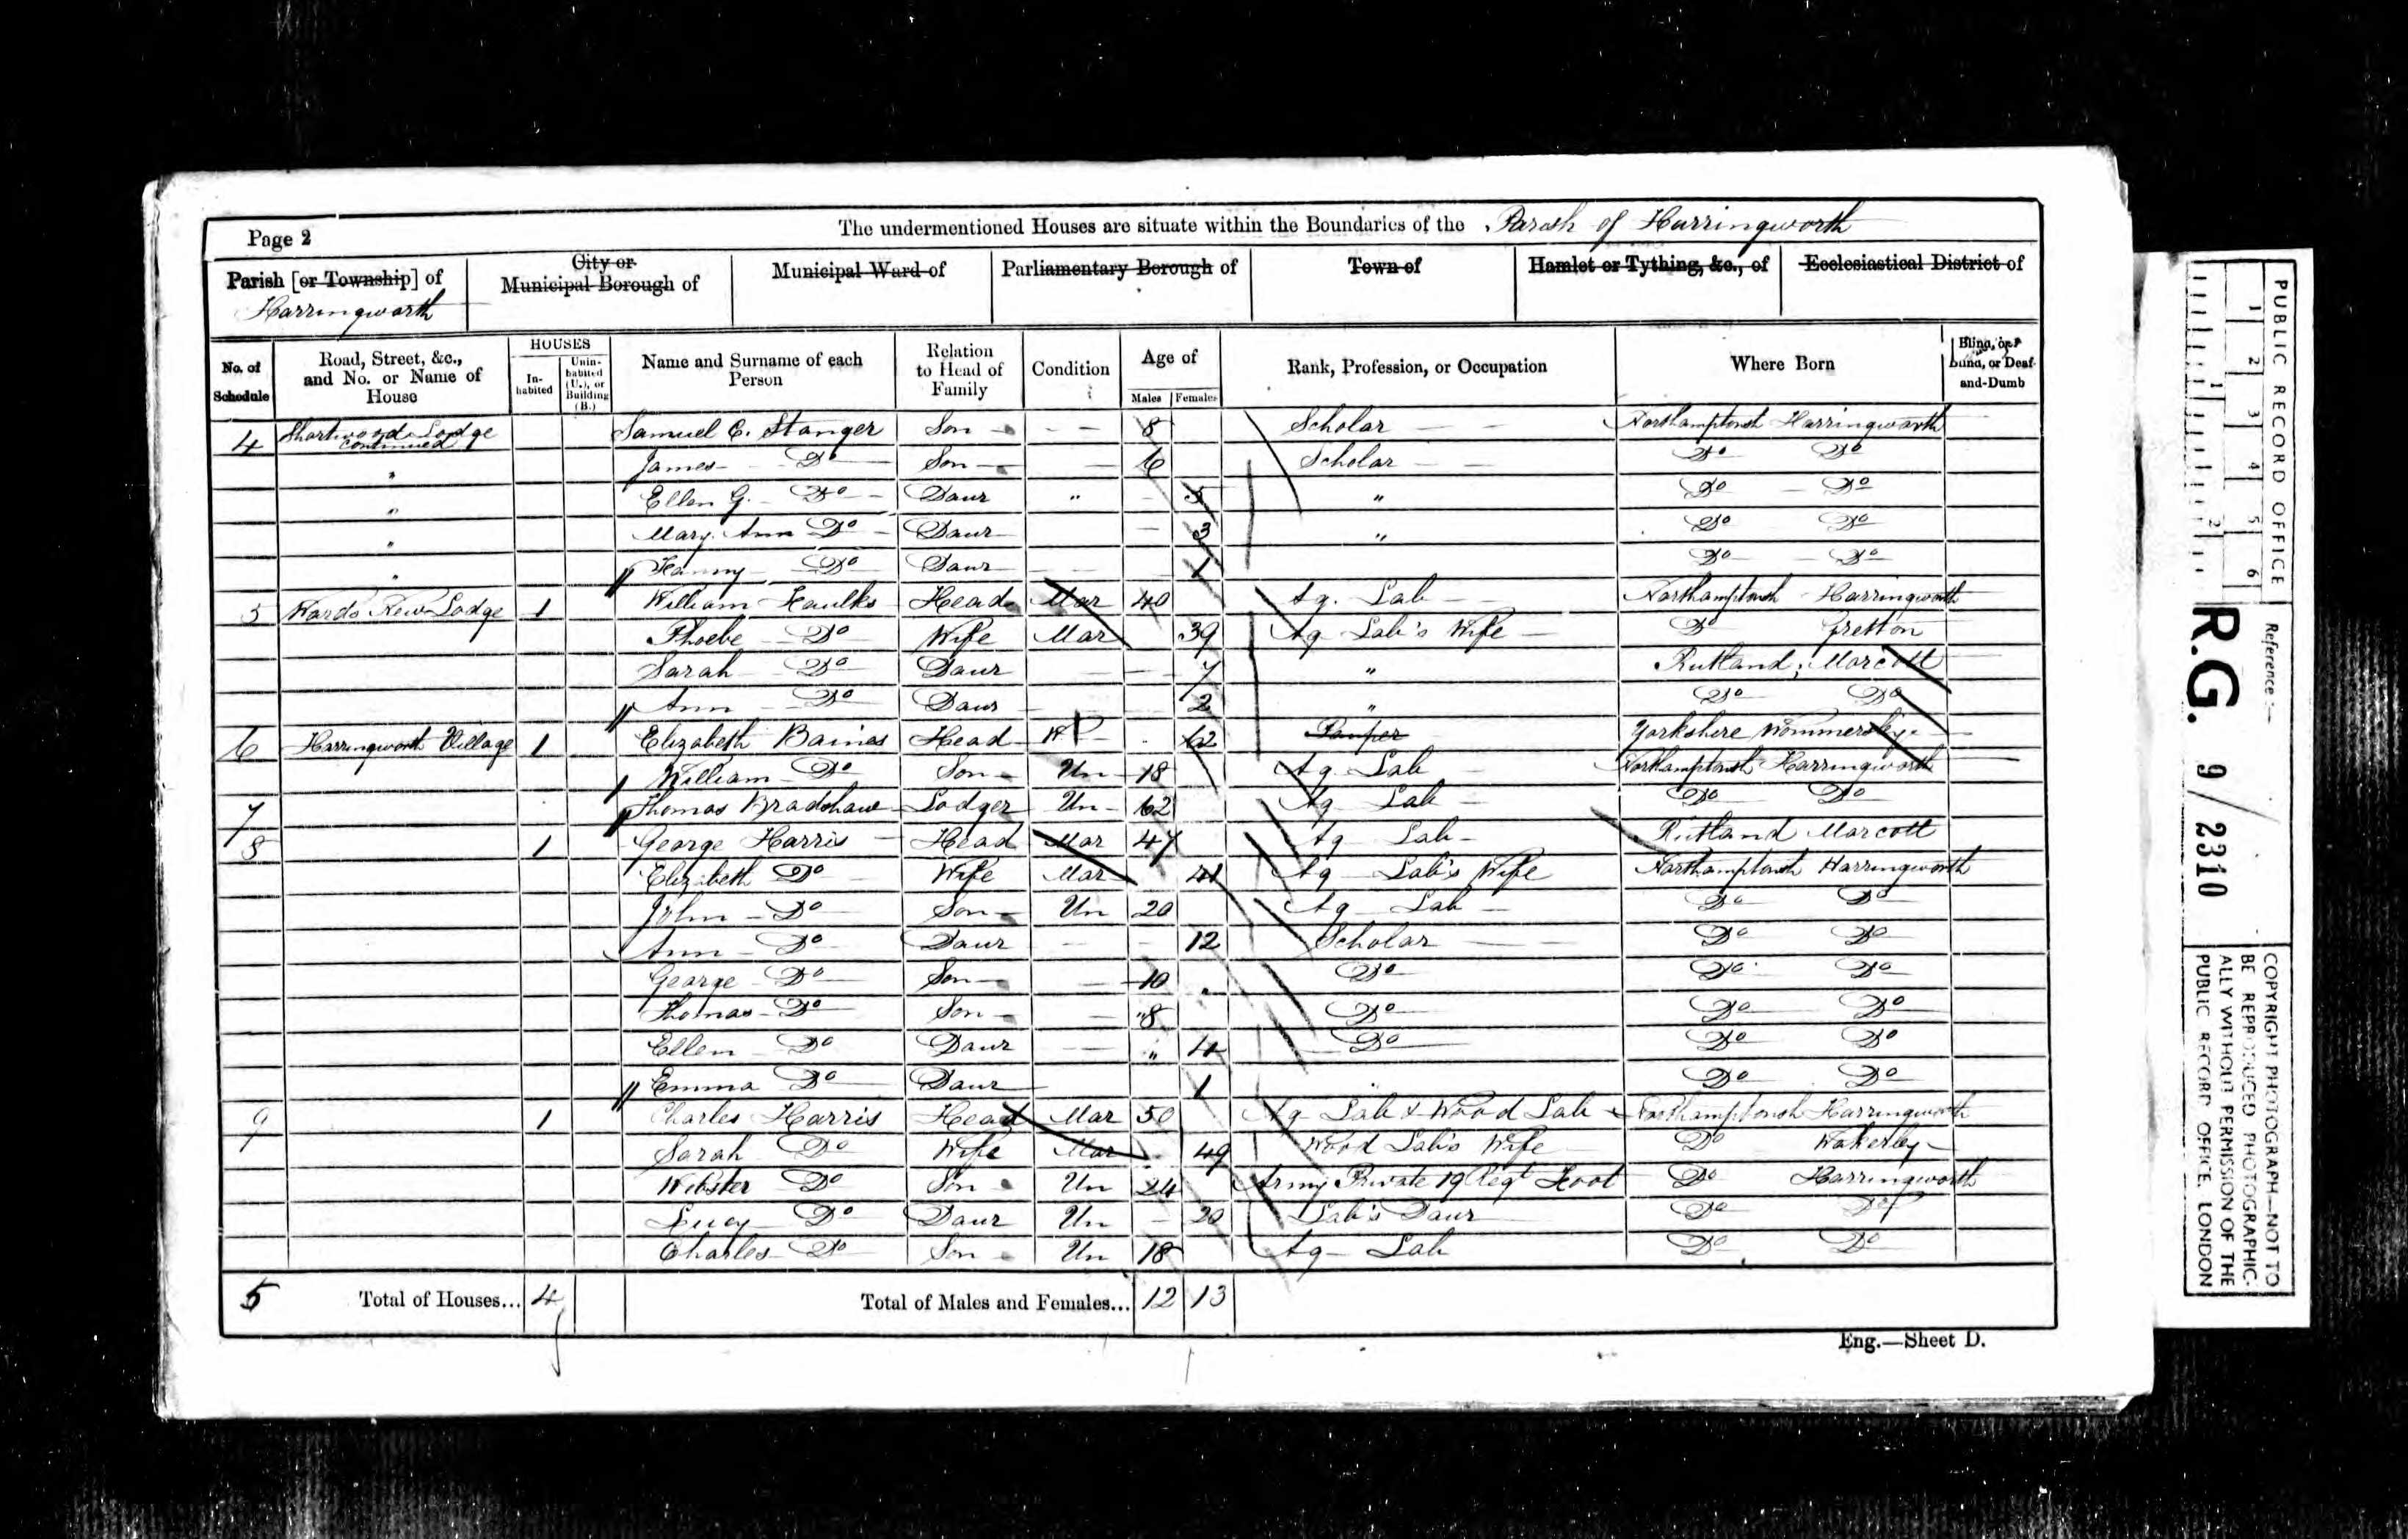 Page 2
The undermentioned Houses are situate within the Boundaries of the Parish of Harringworth
Parish [or Township] of Harringworth
City or Municipal Borough of
Municipal Ward of
Parliamentary Borough of
Town of
Hamlet or Tything, &c., of
Ecclesiastical District of
No. of Schedule
Road, Street, &c., and No. or Name of House
HOUSES
In-habited
Unin-habited (U.), or Building (B.)
Name and Surname of each Person
Relation to Head of Family
Condition
Age of
Males
Females
Rank, Profession, or Occupation
Where Born
Blind, or Deaf-and-Dumb
4 Shortwood Lodge continued Samuel E. Stanger Son 8 Scholar Northamptonsh Harringworth
" James Do Son 6 Scholar Do Do
" Ellen G. Do Daur " 5 " Do Do
" Mary Ann Do Daur 3 " Do Do
" Fanny Do Daur 1 Do Do
5 Wards New Lodge 1 William Faulks Head Mar 40 Ag. Lab Northamptonsh Harringworth
Phoebe Do Wife Mar 39 Ag Lab's Wife Do Gretton
Sarah Do Daur 7 " Rutland, Morcott
Ann Do Daur 2 " Do Do
6 Harringworth Village 1 Elizabeth Baines Head W 62 Pauper Yorkshire Wommersley
William Do Son Un 18 Ag. Lab Northamptonsh Harringworth
7 Thomas Bradshaw Lodger Un 62 Ag Lab Do Do
8 1 George Harris Head Mar 47 Ag Lab Rutland Morcott
Elizabeth Do Wife Mar 41 Ag Lab's Wife Northamptonsh Harringworth
John Do Son Un 20 Ag Lab Do Do
Ann Do Daur 12 Scholar Do Do
George Do Son 10 Do Do Do
Thomas Do Son "8 Do Do Do
Ellen Do Daur " 4 Do Do Do
Emma Do Daur 1 Do Do
9 1 Charles Harris Head Mar 50 Ag Lab & Wood Lab Northamptonsh Harringworth
Sarah Do Wife Mar 49 Wood Lab's Wife Do Wakerley
Webster Do Son Un 24 Army Private 19 Regt Foot Do Harringworth
Lucy Do Daur Un 20 Lab's Daur Do Do
Charles Do Son Un 18 Ag Lab Do Do
5 Total of Houses... 4 Total of Males and Females... 12 13
Eng.—Sheet D.
PUBLIC RECORD OFFICE
1 2 3 4 5 6
1 2
Reference:—
R.G. 9/2310
COPYRIGHT PHOTOGRAPH—NOT TO
BE REPRODUCED PHOTOGRAPHIC-
ALLY WITHOUT PERMISSION OF THE
PUBLIC RECORD OFFICE, LONDON